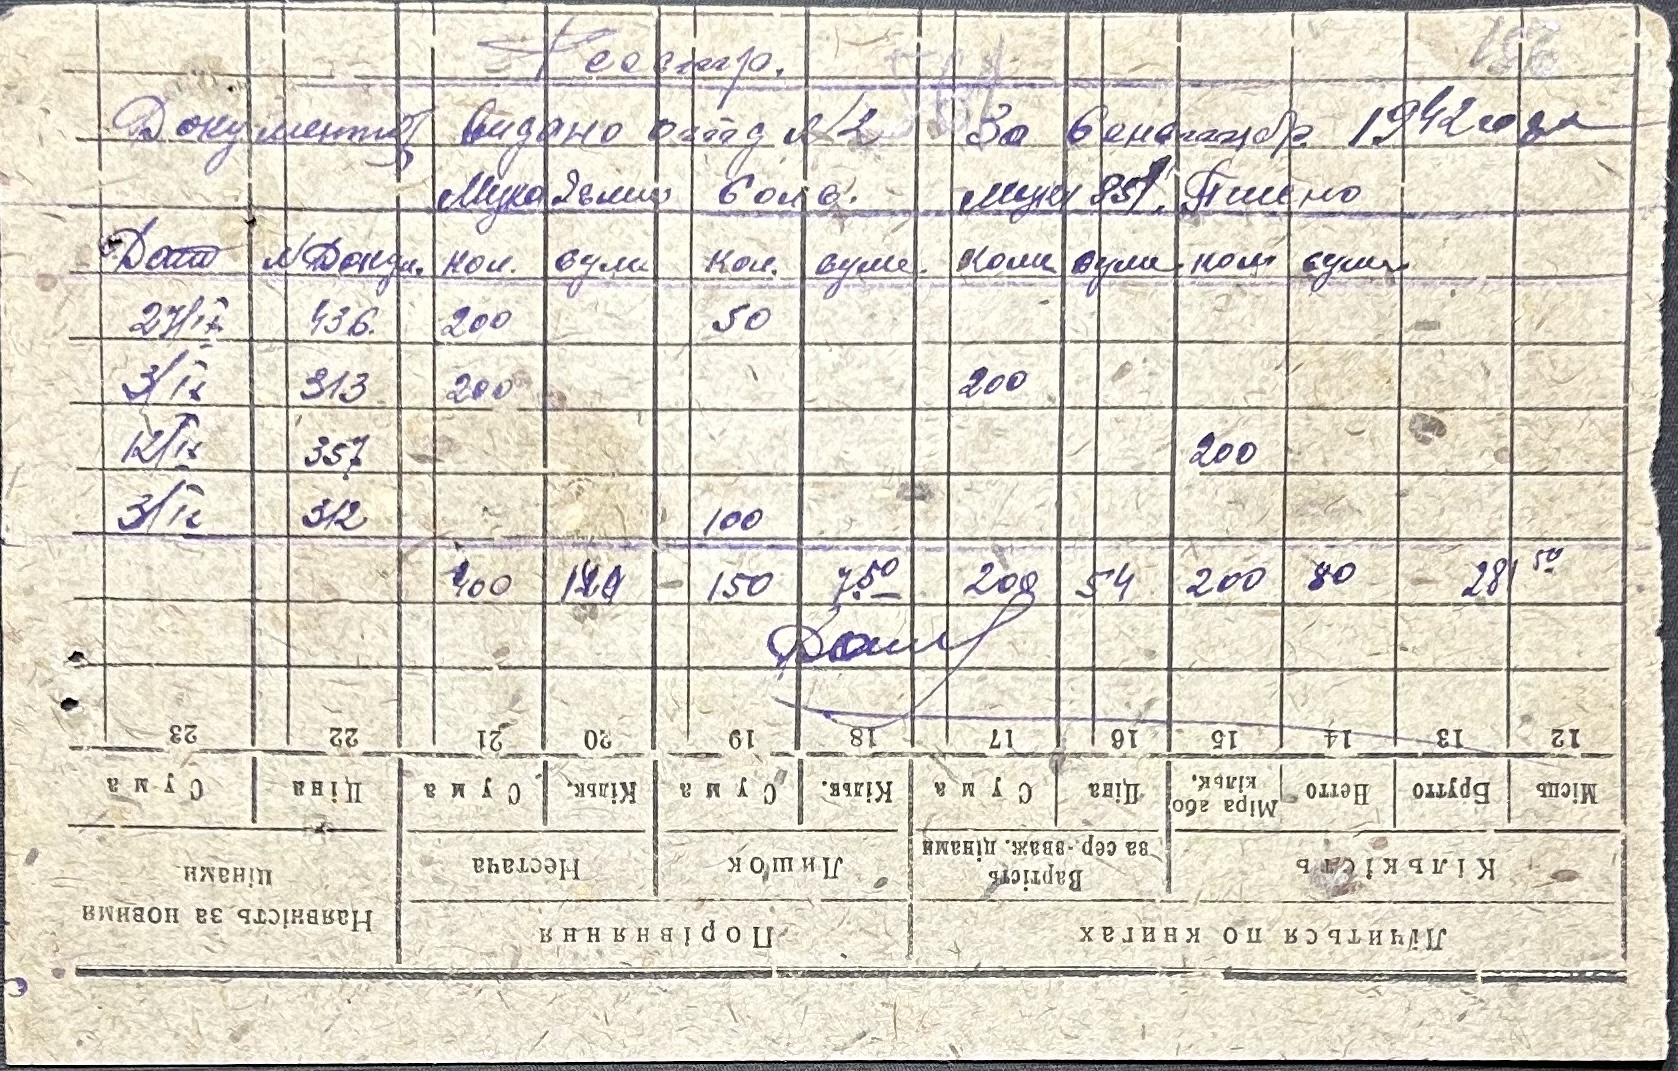 Реестр.
Документов Видано отд №2 За Сентябр 1942 года
Мука Ячмен Болв. Муки 85% Пшено
Дата № Докум. кол. сум кол. сум. Коли сум кол сум
27/IX 436. 200 50
3/IX 313 200 200
12/IX 357 200
3/IX 312 100
400 150 7.50 200 54 200 80 281 50
23 22 21 20 19 18 17 16 15 14 13 12
Сума Ціна Сума Кільк. Сума Кільк. Сума Ціна Міра або кільк. Нетто Брутто Місць
Наявність за новими цінами Нестача Лишок Вартість за сер.-зваж. цінами Кількість
Порівняння Лічиться по книгах